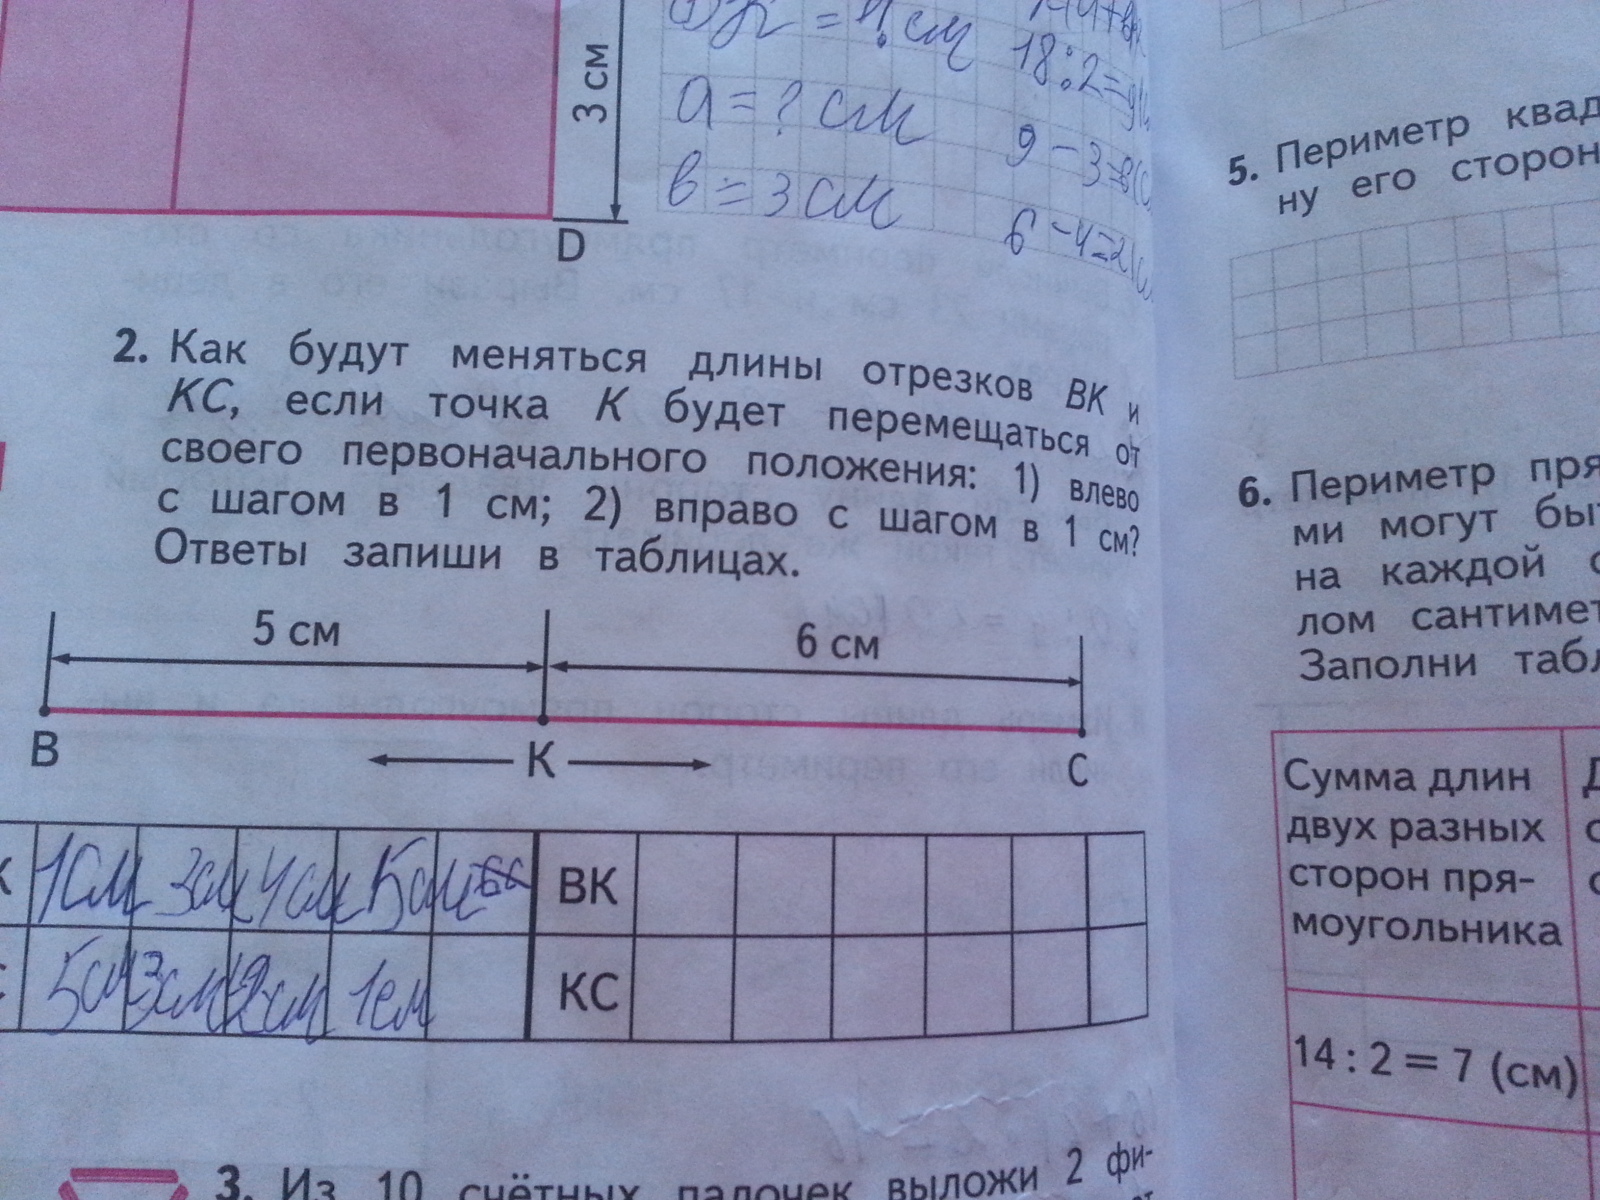 3 см
= 4 см
а = ? см
в = 3 см
18 : 2 =
9 - 3 =
6 - 4 = 2
D
2. Как будут меняться длины отрезков ВК и
КС, если точка К будет перемещаться от
своего первоначального положения: 1) влево
с шагом в 1 см; 2) вправо с шагом в 1 см?
Ответы запиши в таблицах.
5 см
6 см
В
К
С
1см 3см 4см 5см ВК
5см 3см 2см 1см КС
3. Из 10 счётных палочек выложи 2 фи-
5. Периметр квад
ну его сторон
6. Периметр пря
ми могут бы
на каждой
лом сантимет
Заполни таб
Сумма длин
двух разных
сторон пря-
моугольника
14 : 2 = 7 (см)